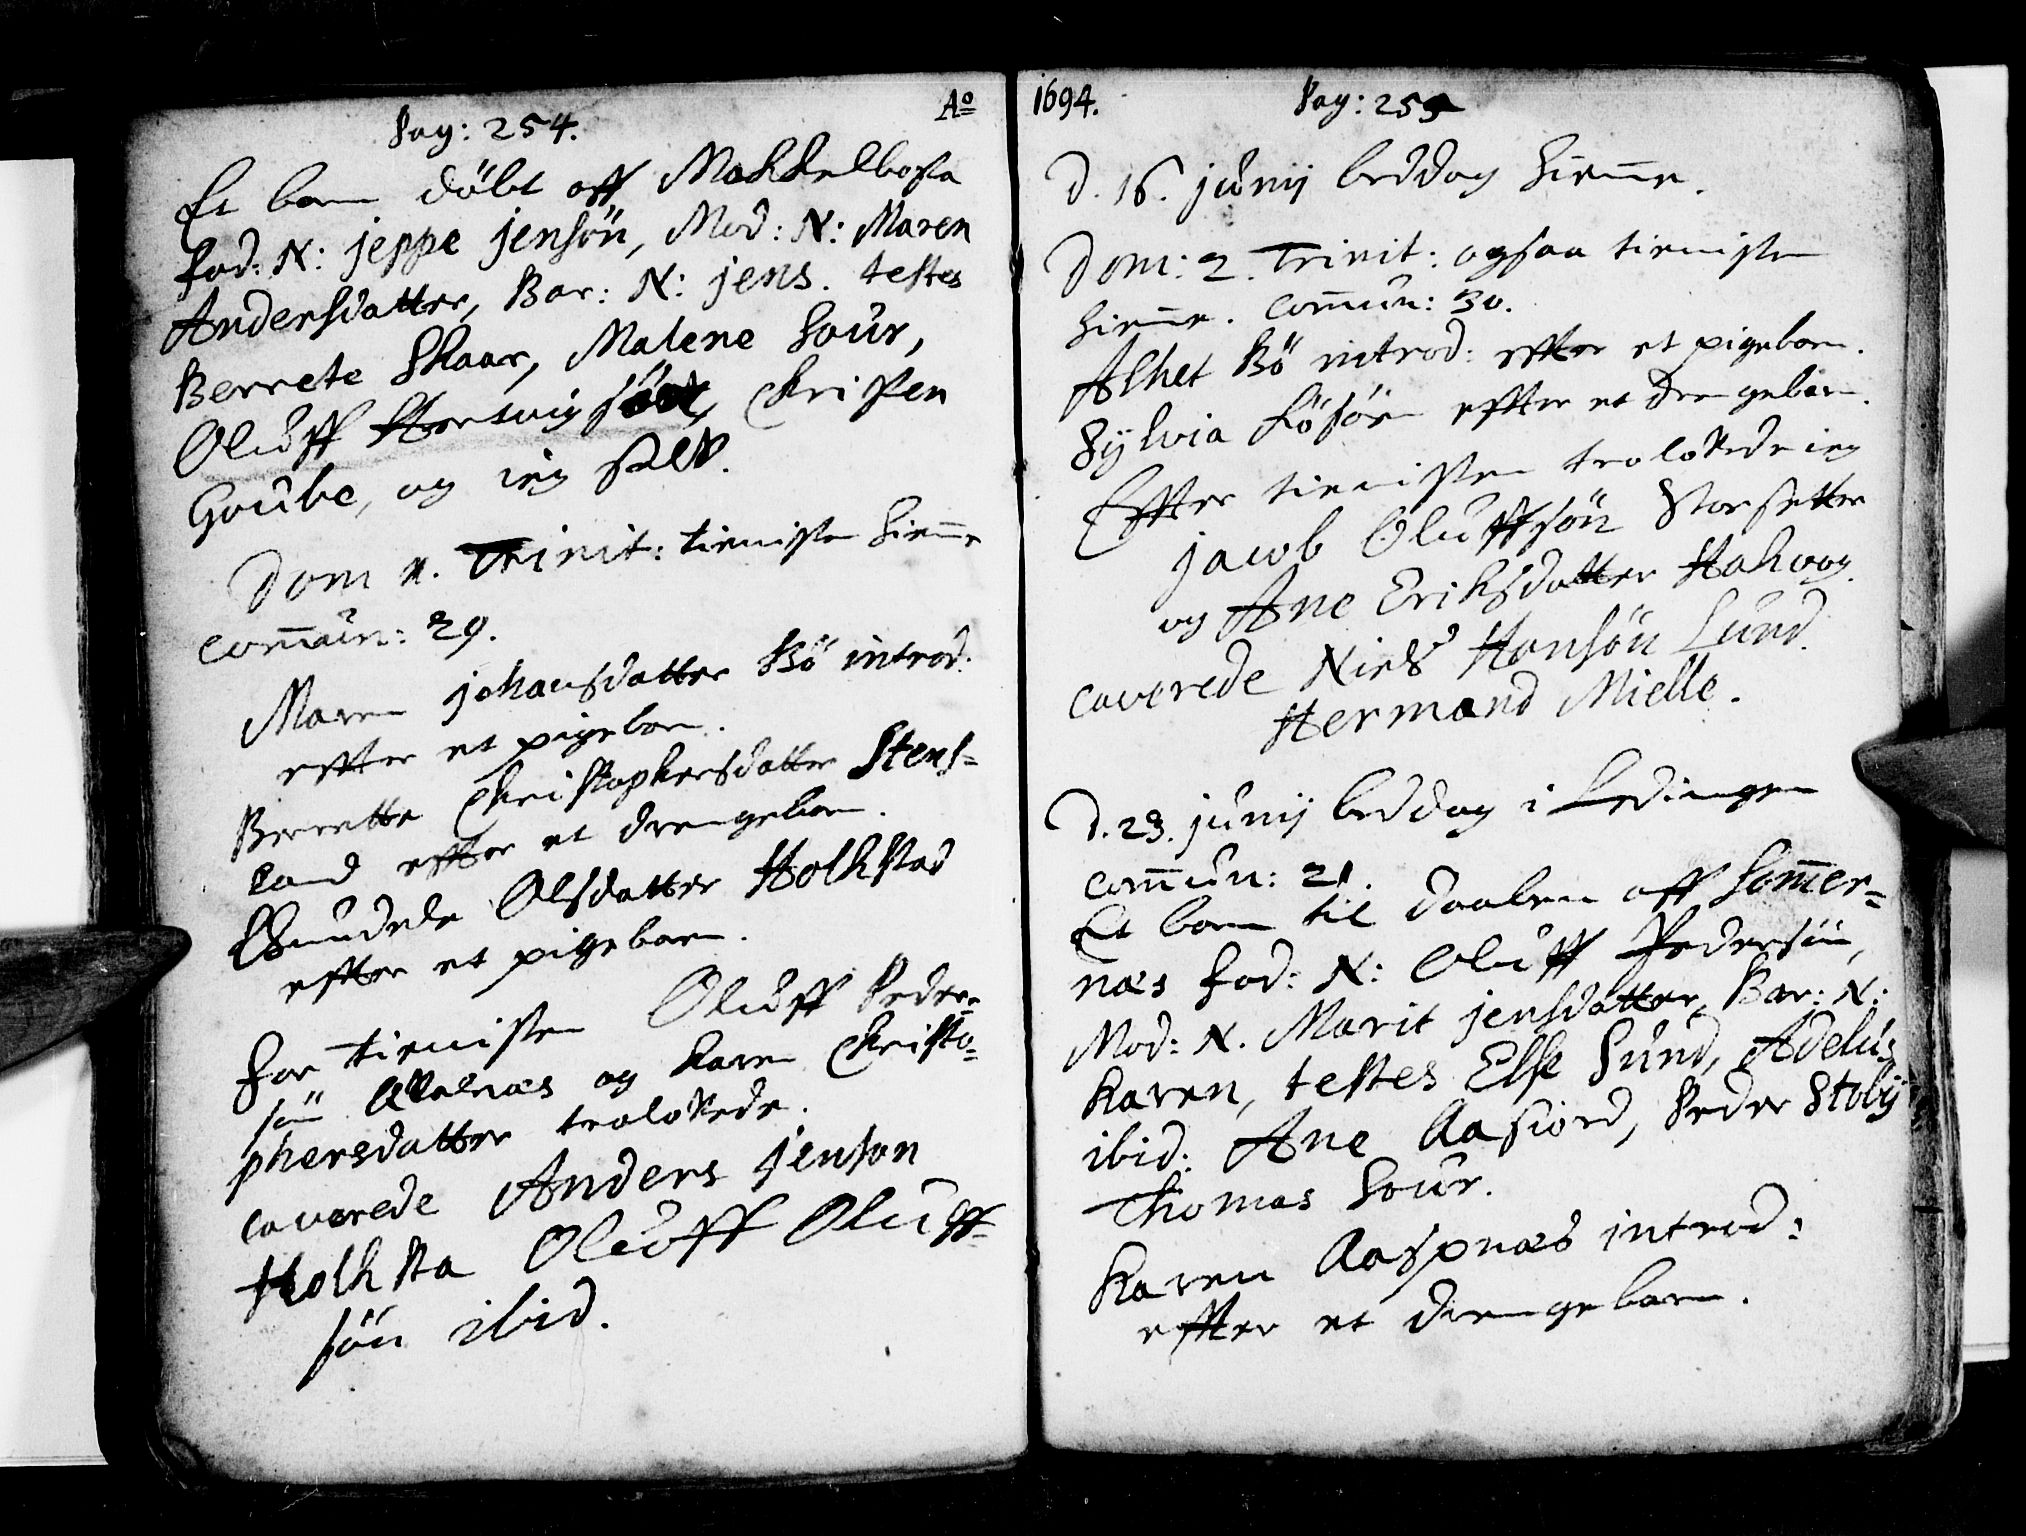 Pag: 254.
Aº
Et barn döbt aff Mekkelbosta
Fad: N: Jeppe Jensön, Mod: N: Maren
Andersdatter, Bar: N: Jens. testes
Berrete Skaar, Malene Saur,
Oluff Hartvigsön, Christen
Graube, og ieg self.
Dom 1. Trinit: tienisten hiem̄e
com̄un: 29.
Maren Johansdatter Bö introd:
effter et pigebarn.
Berrette Christophersdatter Stens-
land effter et drengebarn.
Olsdatter Holkstad
efter et pigebarn.
For tienisten Oluff Peder-
sön og Karen Christo-
phersdatter trolofvede.
caverede Anders Jenson
Holksta Oluff Oluff-
sön ibid.
1694.
Pag: 255
D. 16. Junij beddag hiem̄e.
Dom: 2. Trinit: ogsaa tienisten
hiem̄e. com̄un: 30.
Alhet Bö introd: effter et pigebarn.
Sylvia effter et drengebarn.
Effter tienisten trolofvede ieg
Jacob Oluffsön Storsetter
og Ane Eriksdatter
caverede Niels Hansön Lund.
Hermand Mielle.
D. 23. Junij beddag i Lödingen
com̄un: 21.
Et barn til daaben aff Som̄er-
næs Fad: N: Oluff Pedersön,
Mod: N. Marit Jensdatter, Bar: N:
Karen, testes Else Sund, Adelus
ibid: Ane Aafiord, Peder Stoby
Thomas Saur.
Karen Aaspnæs introd:
effter et drengebarn.